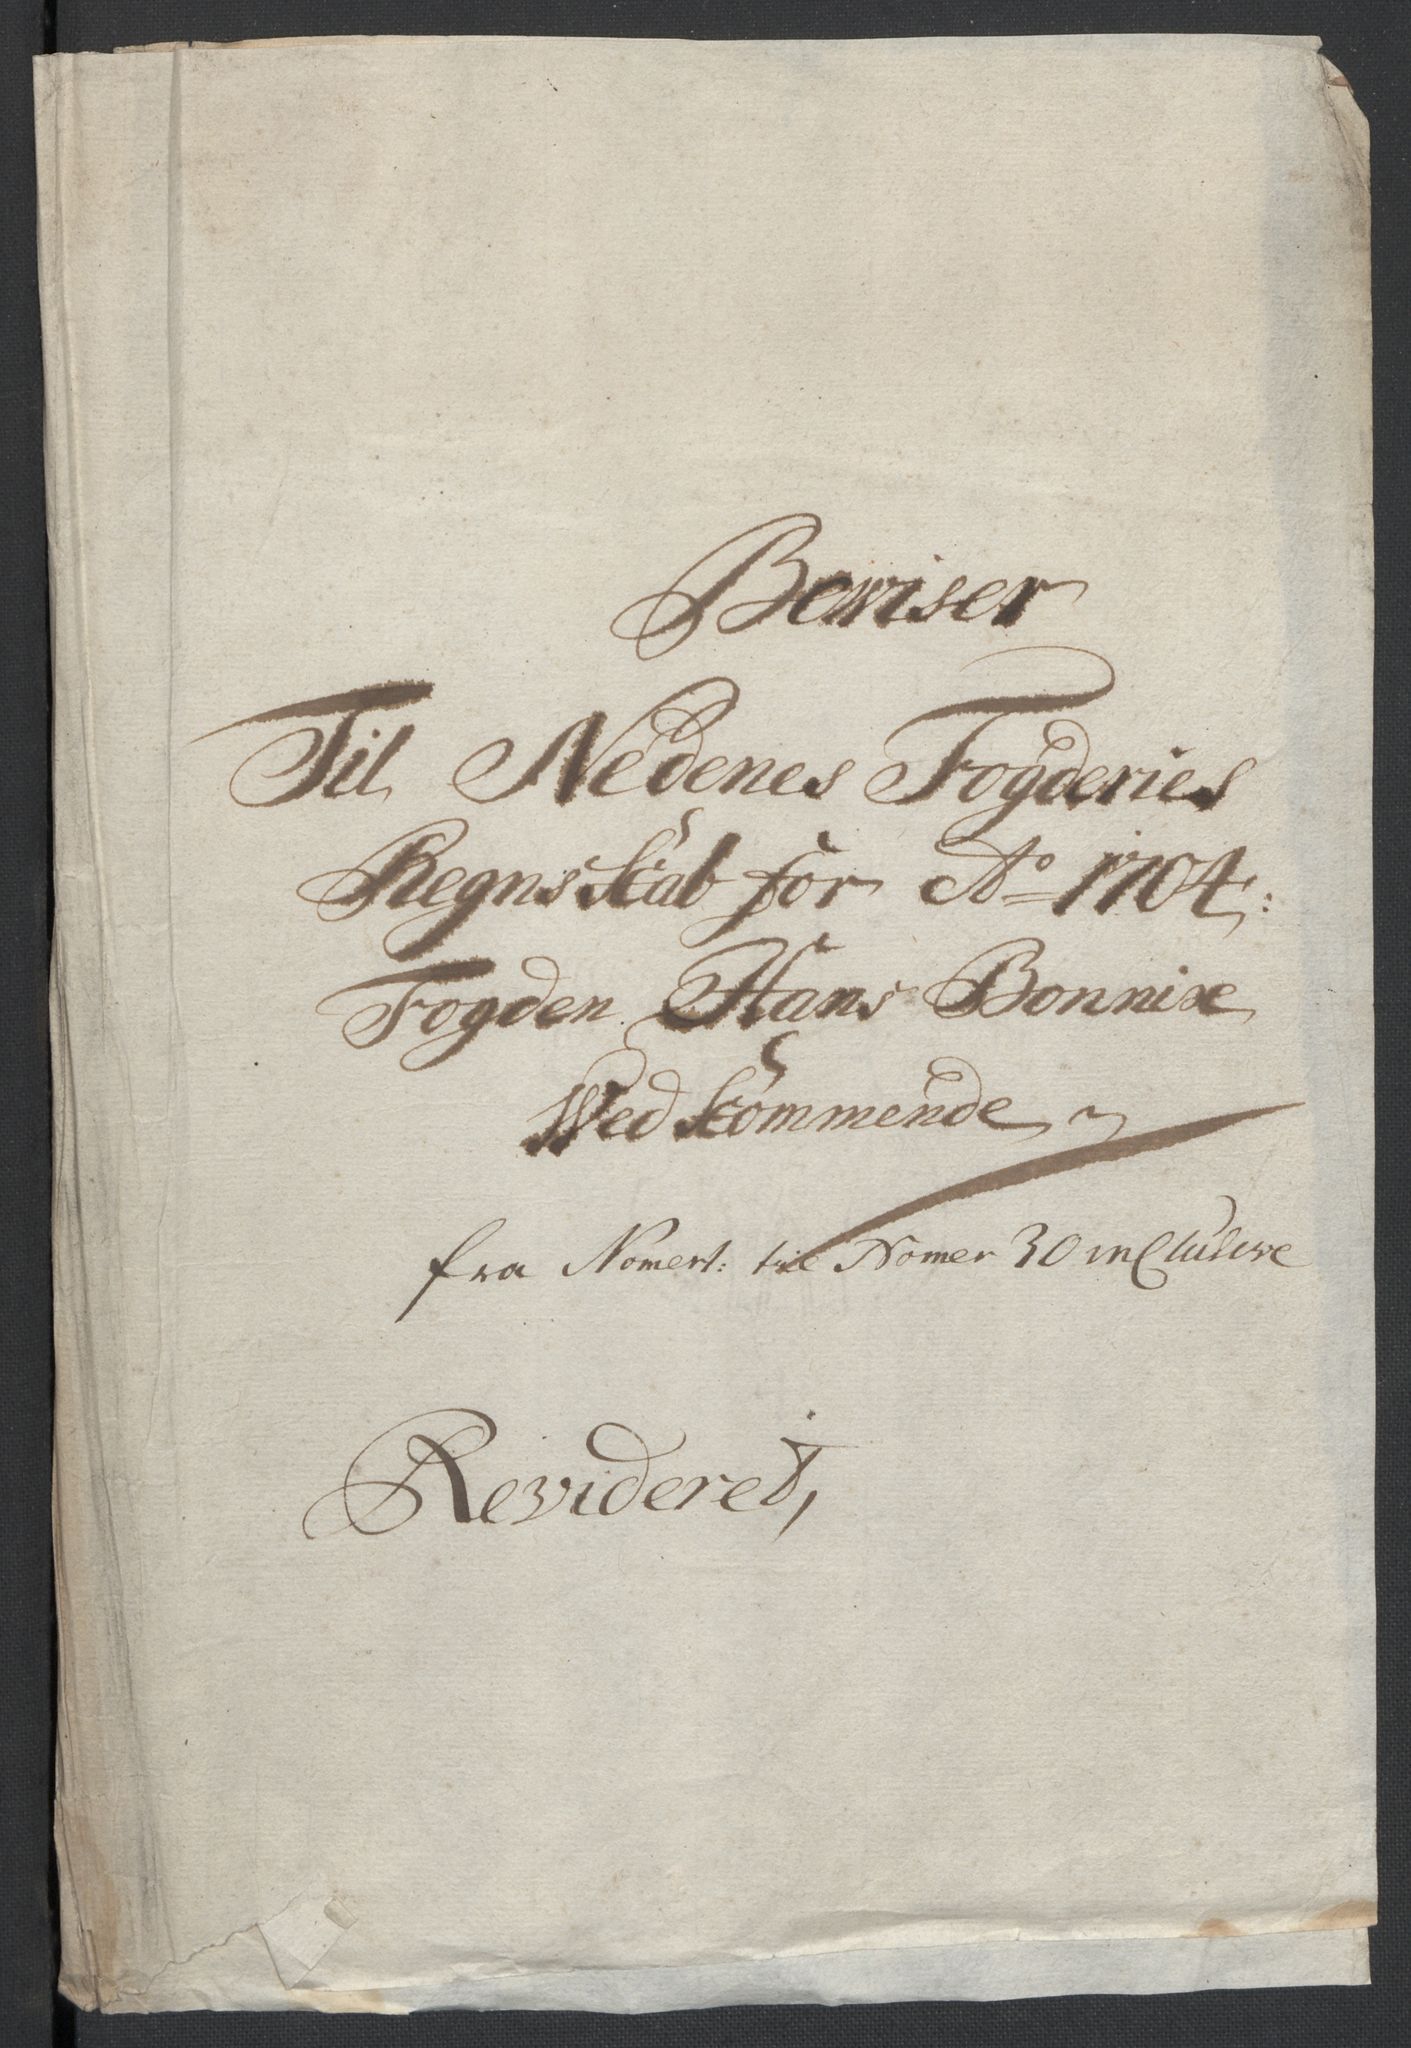 Bewiser
Til Nedenes Fogderies
Regnsskab for Aᵒ 1704:
Fogden Hans Bonnixe
Wedkommende
fra Nomer 1: til Nomer 30 inclusive
Revideret,